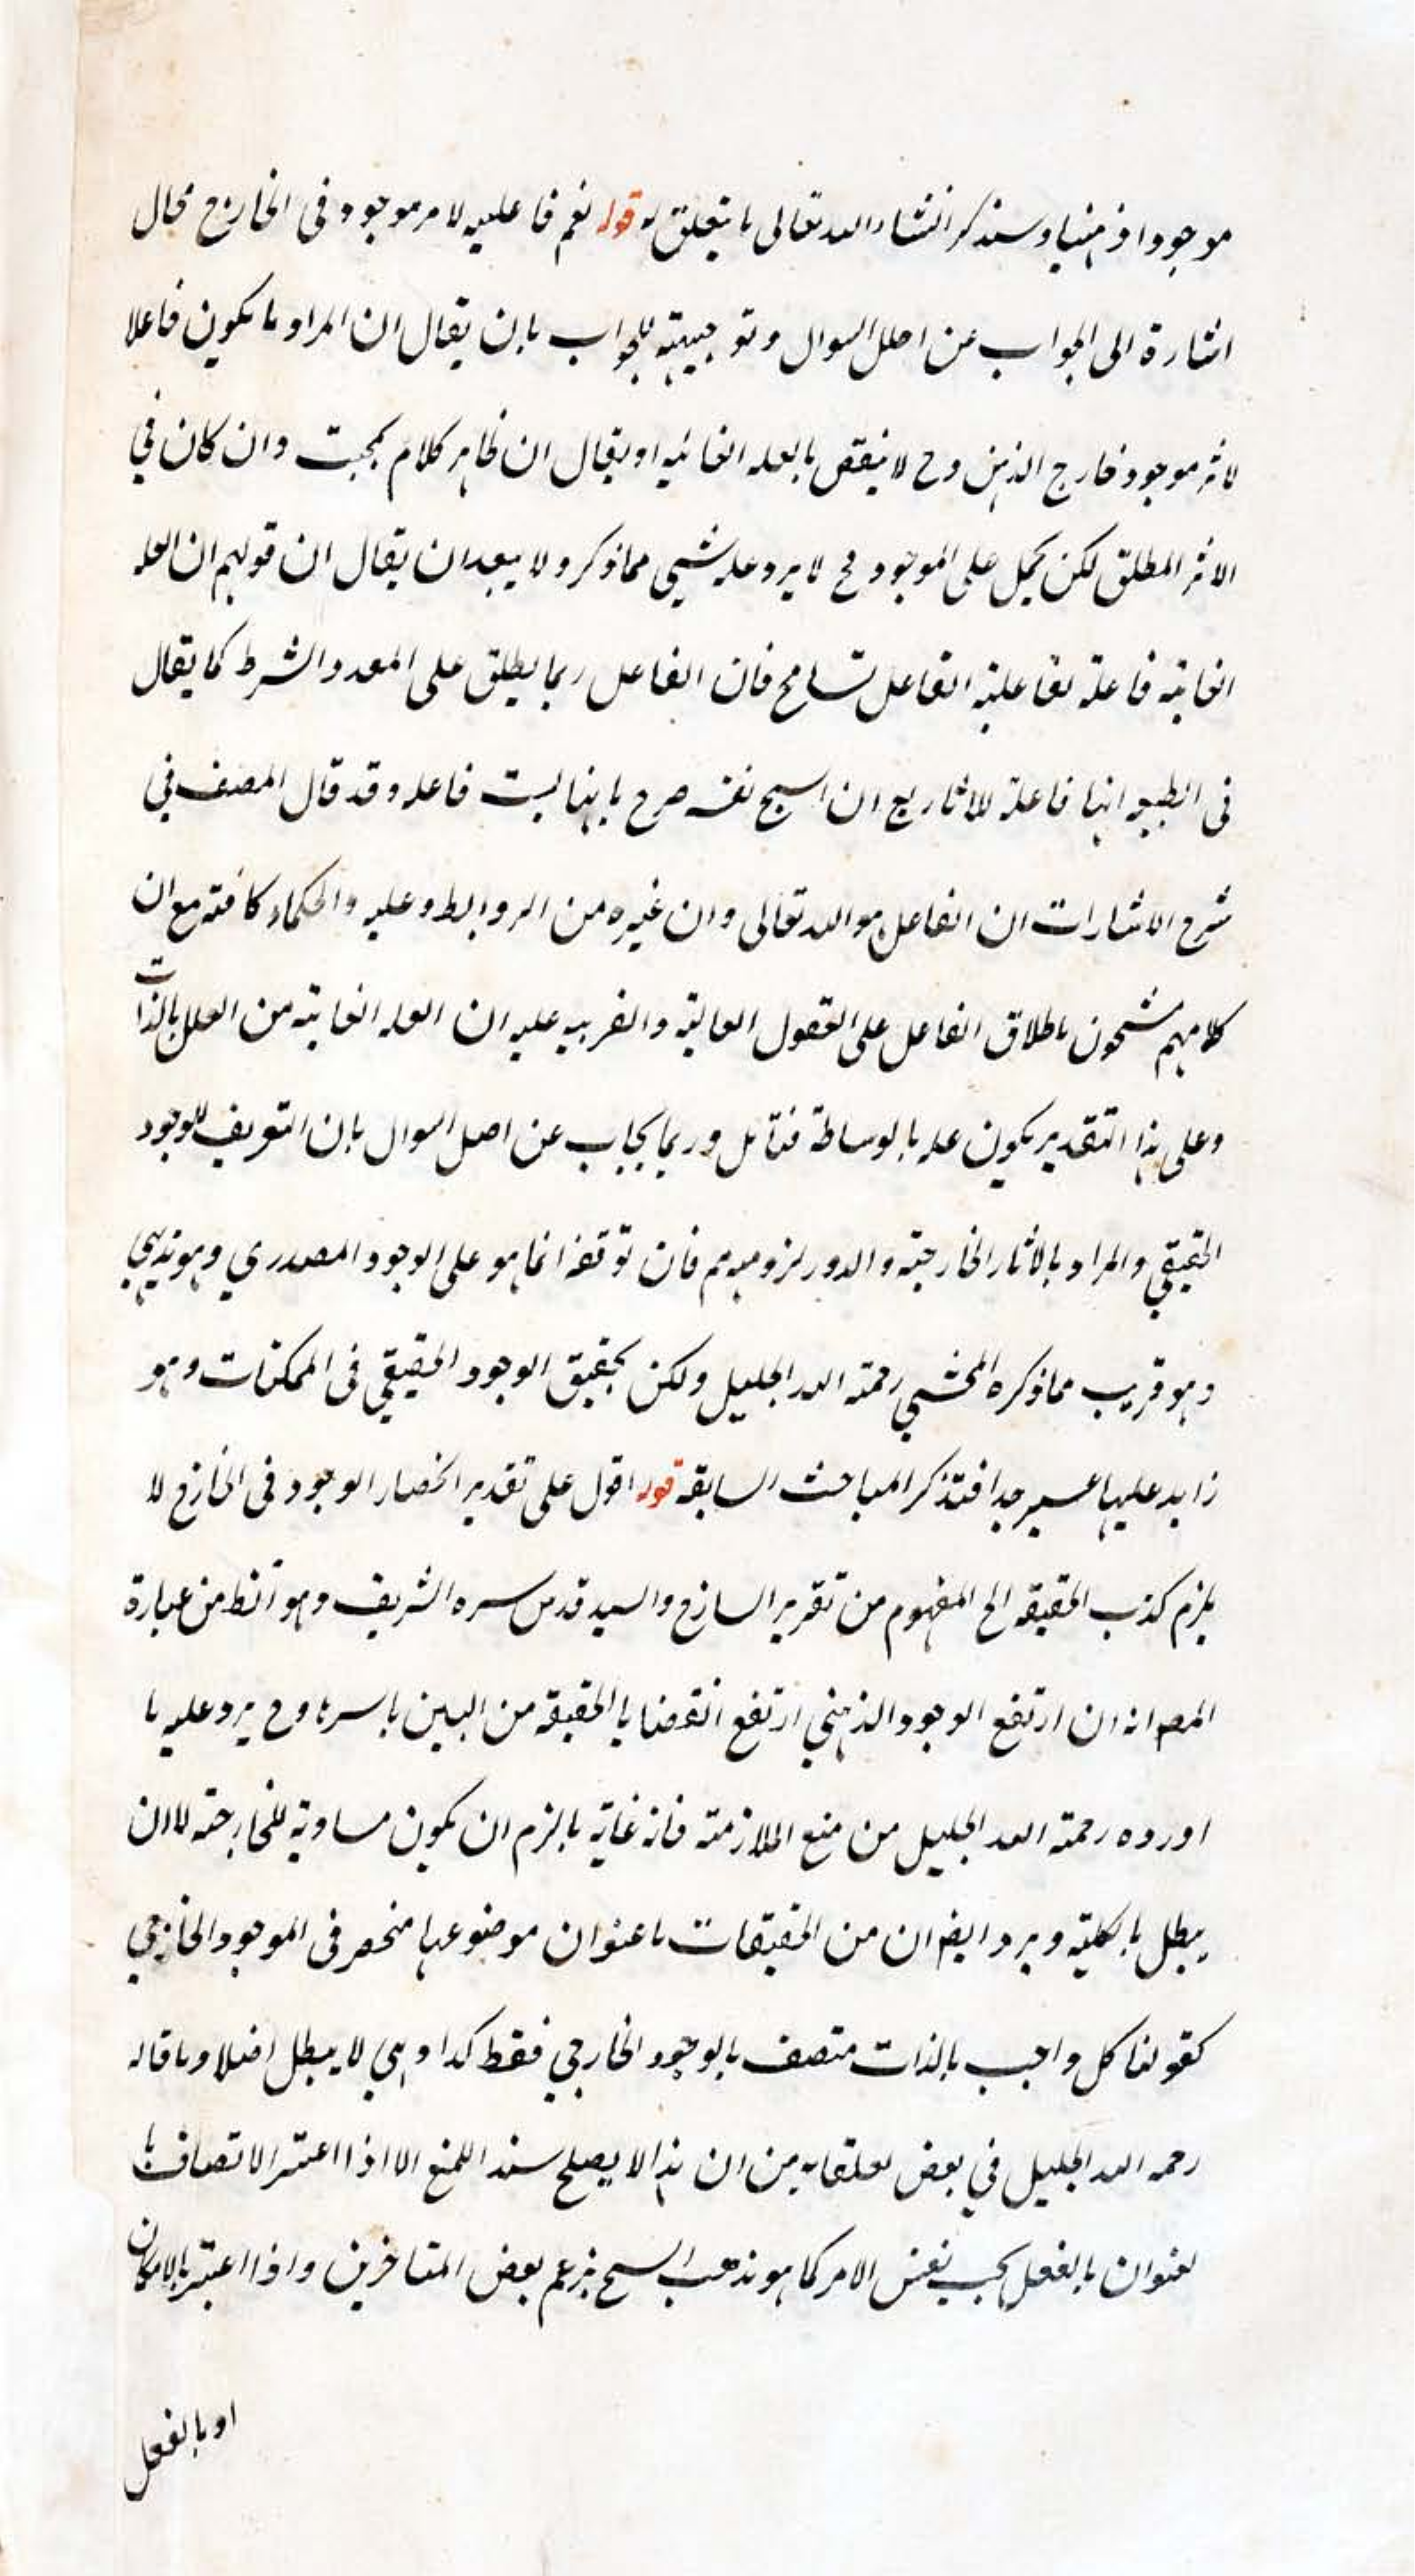 موجودا ذهنيا وسنذكر انشاء الله تعالى ما يتعلق به قوله نعم فاعليه لامر موجود في الخارج محال
اشارة الى الجواب عن اصل السوال وتوجيهه للجواب بان يقال ان المراد ما يكون فاعلا
لاثر موجود خارج الذهن وح لا ينقض بالعله الغائيه او يقال ان ظاهر كلام بحيث وان كان في
الاثر المطلق لكن يحمل على الموجود فح لا يرد عليه شيي مما ذكر ولا يبعد ان يقال ان قولهم ان العله
الغايته فاعلة لفاعلية الفاعل تسامح فان الفاعل ربما يطلق على المعد والشرط كما يقال
في الطبيعه انها فاعلة للاثار مع ان الشيخ نفسه صرح بانها ليست فاعله وقد قال المصنف في
شرح الاشارات ان الفاعل هو الله تعالى وان غيره من الروابط وعليه والحكماء كافة مع ان
كلامهم مشحون باطلاق الفاعل على العقول العالية والقرينه عليه ان العله الغايته من العلل بالذات
وعلى هذا التقدير يكون عله بالوساطة فتامل وربما يجاب عن اصل السوال بان التعريف للوجود
الحقيقي والمراد بالاثار الخارجية والدور لزومه مم فان توقفه انما هو على الوجود المصدري وهو بديهي
وهو قريب مما ذكره المحشي رحمة الله الجليل ولكن تحقيق الوجود الحقيقي في الممكنات وهو
زايد عليها عسير جدا فتذكر المباحث السابقه قوله اقول على تقدير انحصار الوجود في الخارج لا
يلزم كذب الحقيقه الخ المفهوم من تقرير الشارح والسيد قدس سره الشريف وهو الظ من عبارة
المصـ انه ان ارتفع الوجود الذهني ارتفع القضايا الحقيقه من البين باسرها وح يرد عليه ما
اورده رحمة الله الجليل من منع الملازمته فانه غاية ما لزم ان يكون مساوية للخارجيه لا ان
يبطل بالكلية ويرد ايضا ان من الحقيقات ما عنوان موضوعها منحصر في الموجود الخارجي
كقولنا كل واجب بالذات متصف بالوجود الخارجي فقط كذا وهي لا يبطل اصلا وما قاله
رحمه الله الجليل في بعض تعلقاته من ان هذا لا يصلح سندا للمنع الا اذا اعتبر الاتصاف با
لعنوان بالفعل بحسب نفس الامر كما هو مذهب الشيخ بزعم بعض المتاخرين واذا اعتبر بالامكان
او بالفعل